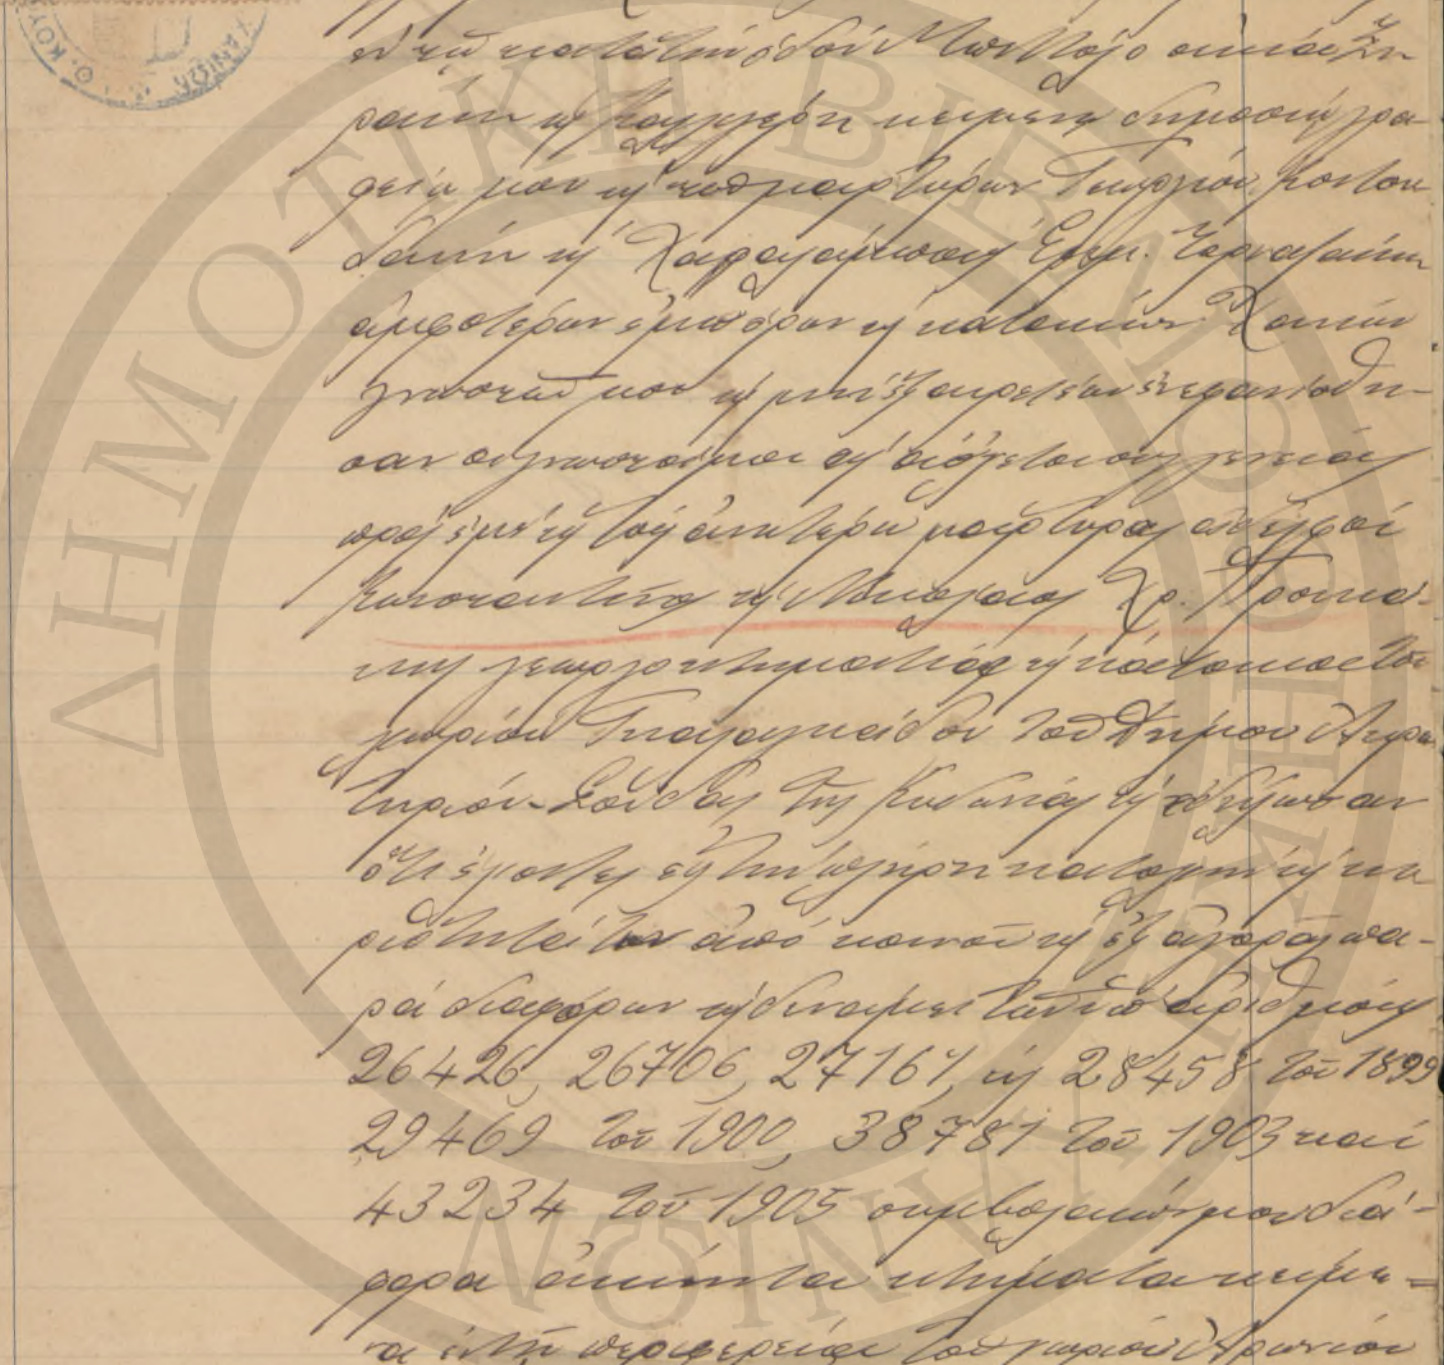 ἐν τῷ κατὰ τὴν ὁδὸν οἰκίας Ζη
ρακην κ Καλλιέργη κειμένῳ δημοσιογρα-
φείῳ μου κ τῶν μαρτύρων Γεωργίου Κουτου
δάκη κ Χαραλάμπους Ἐμμ.
ἀμφοτέρων ἐμπόρων κ κατοίκων Χανίων
γνωστῶν μου κ μὴ ἐξαιρετέων ἐνεφανίσθη-
σαν οἱ γνωστοί μοι κ ἀσχέτου συγγενείας
πρὸς ἐμὲ κ τοὺς ἀνωτέρω μάρτυρας ἀδελφοὶ
Κωνσταντῖνος κ Νικόλαος Χρ.
κτηματίαι κ κάτοικοι τοῦ
χωρίου τοῦ Δήμου Ἀκρω
τηρίου-Σούδας τῆς Κυδωνίας κ ἐδήλωσαν
ὅτι ἔχοντες εἰς τὴν πλήρη κατοχὴν κ κυ
ριότητά των ἀπὸ κοινοῦ κ ἐξ ἀγορᾶς πα-
ρὰ διαφόρων κ δυνάμει τῶν ὑπ' ἀριθμοὺς
26426, 26706, 27161, κ 28458 τοῦ 1899
29469 τοῦ 1900, 38781 τοῦ 1903 καὶ
43234 τοῦ 1905 συμβολαίων μου διά-
φορα ἀκίνητα κτήματα κείμε=
να ἐν τῇ περιφερείᾳ τοῦ χωρίου Ἀρωνίου
ΔΗΜΟΤΙΚΗ ΒΙΒΛΙΟΘΗΚΗ ΧΑΝΙΩΝ